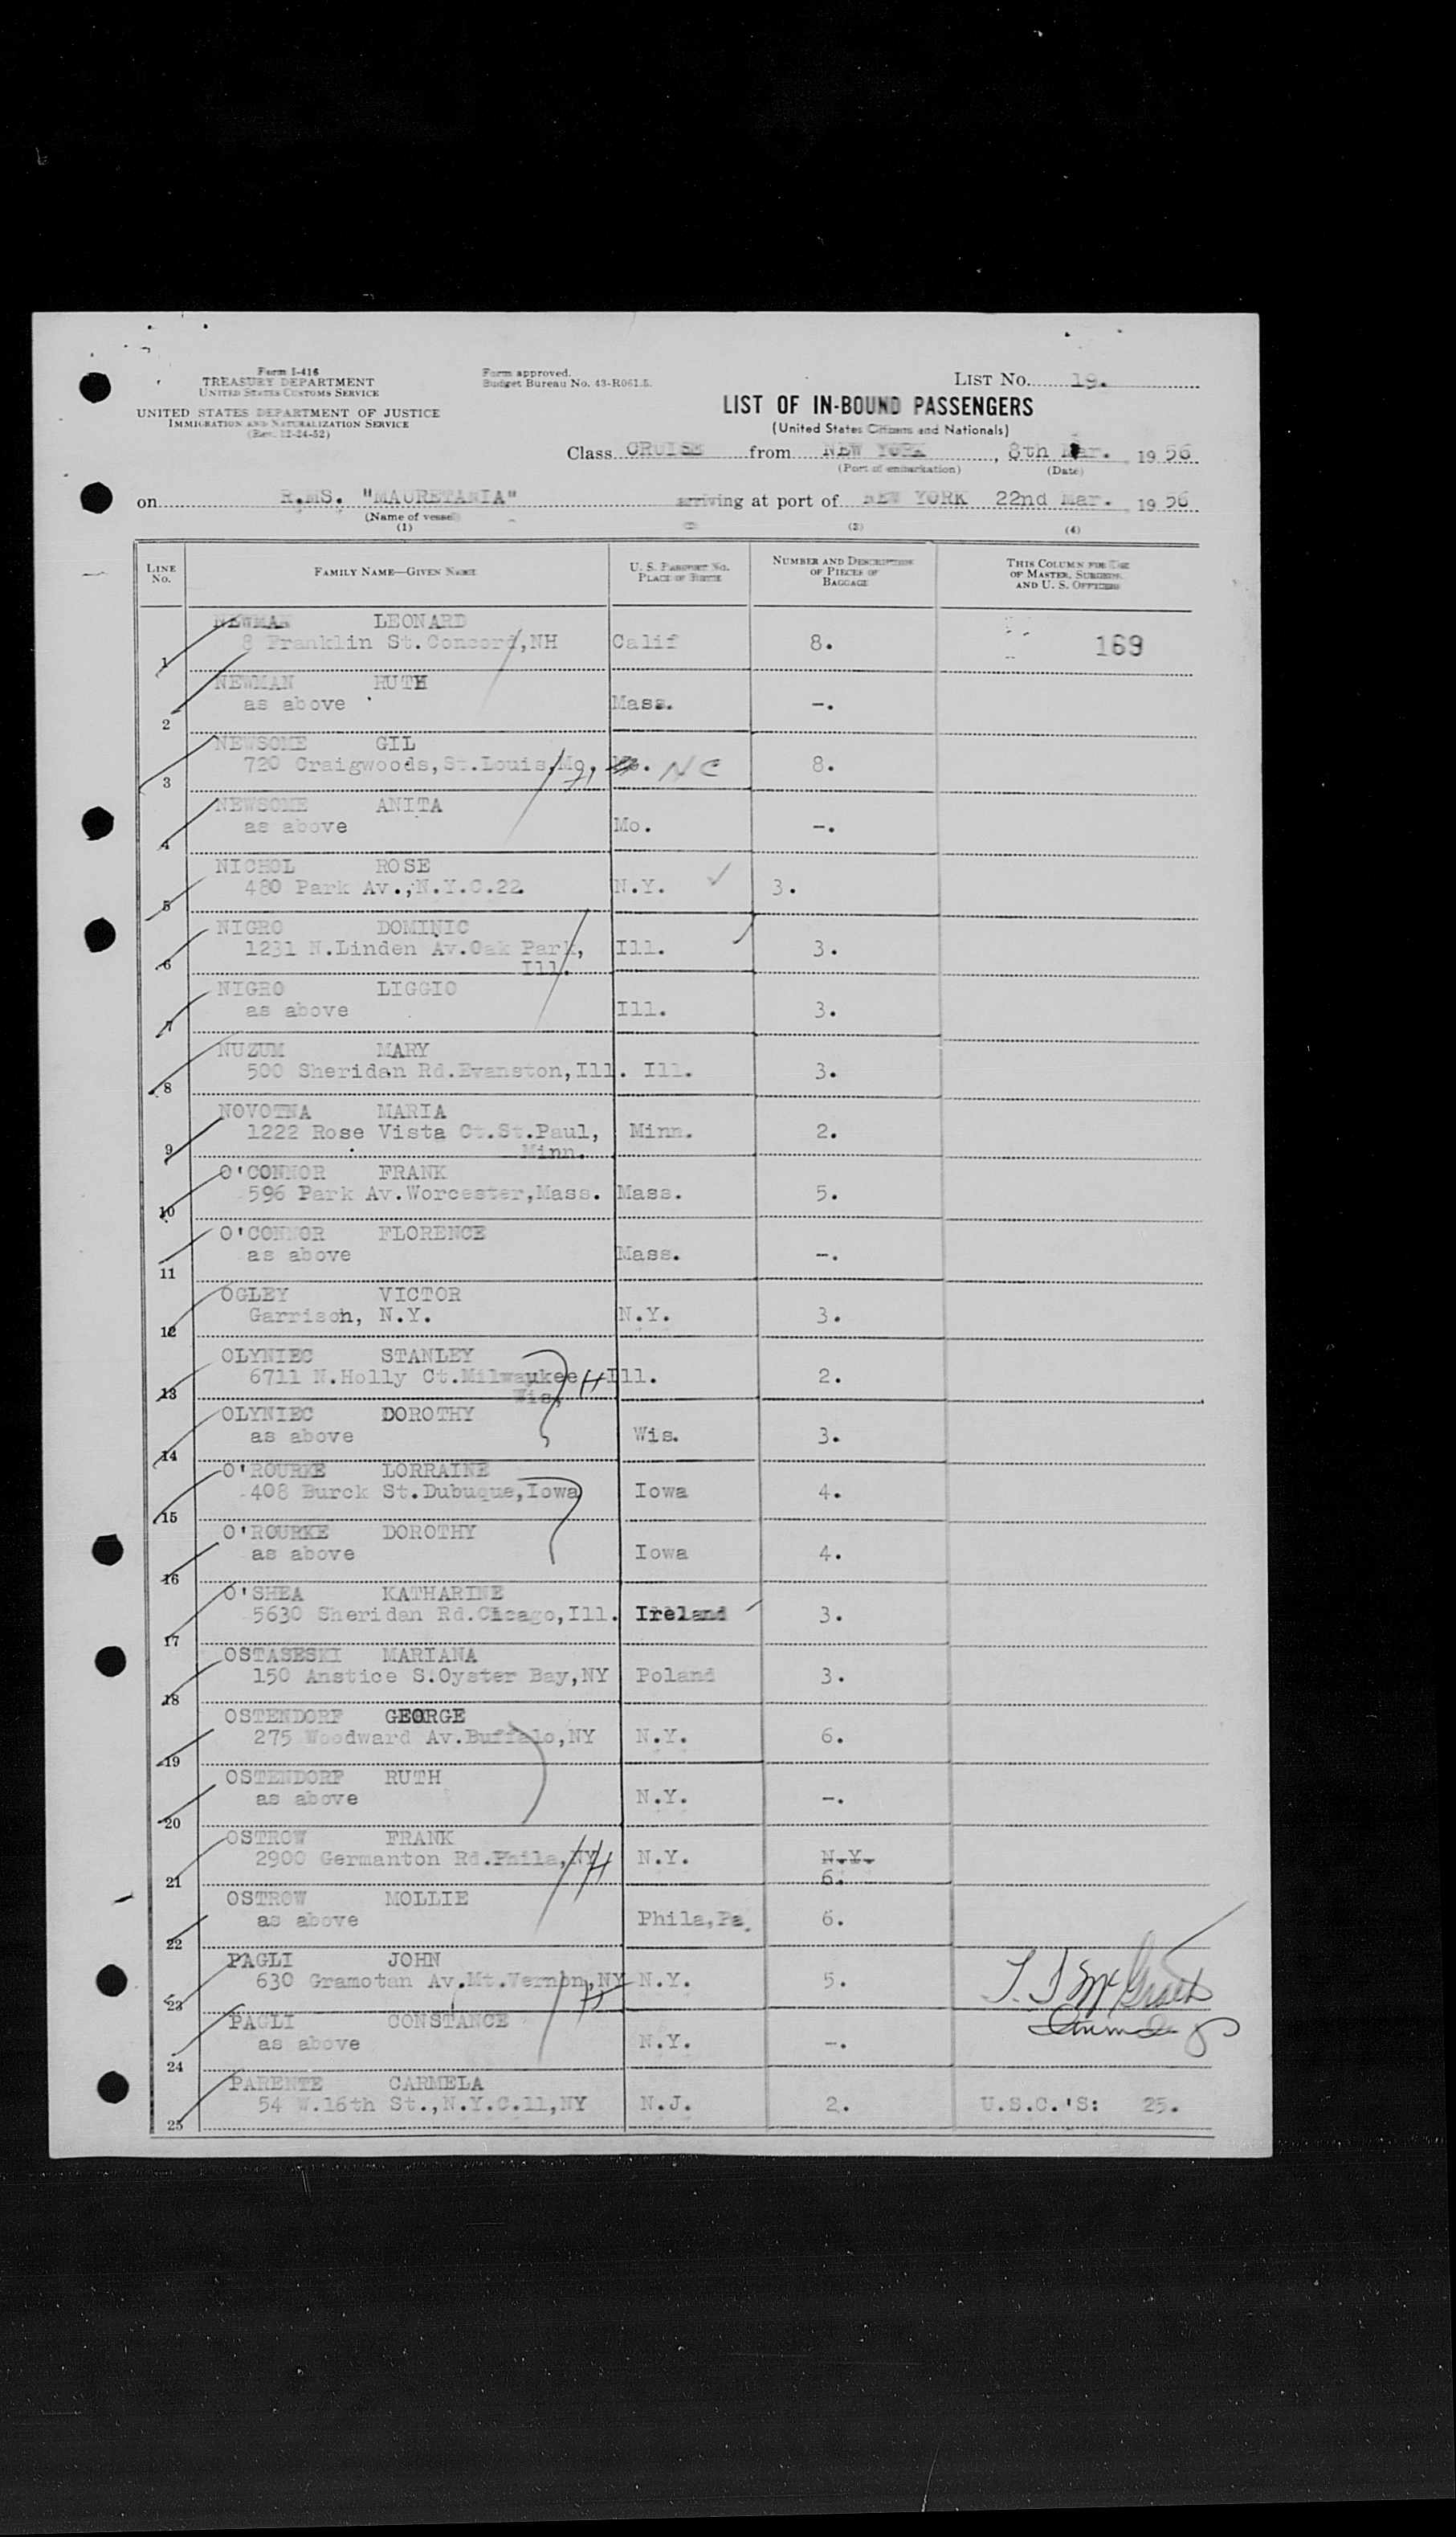 Form I-416
TREASURY DEPARTMENT
UNITED STATES CUSTOMS SERVICE
UNITED STATES DEPARTMENT OF JUSTICE
IMMIGRATION AND NATURALIZATION SERVICE
(Rev. 12-24-52)
Form approved.
Budget Bureau No. 43-R061.5.
LIST No. 19.
LIST OF IN-BOUND PASSENGERS
(United States Citizens and Nationals)
Class CRUISE from NEW YORK, 8th Mar. 1956
(Port of embarkation) (Date)
on R.MS. "MAURETANIA" arriving at port of NEW YORK 22nd Mar. 1956
(Name of vessel)
(1) (2) (3) (4)
LINE No. FAMILY NAME—GIVEN NAME U. S. PASSPORT NO. PLACE OF BIRTH NUMBER AND DESCRIPTION OF PIECES OF BAGGAGE THIS COLUMN FOR USE OF MASTER, SURGEON, AND U. S. OFFICERS
NEWMAN LEONARD
1 8 Franklin St.Concord,NH Calif 8. 169
NEWMAN RUTH
2 as above Mass. -.
NEWSOME GIL
3 720 Craigwoods,St.Louis,Mo, NC 8.
NEWSOME ANITA
4 as above Mo. -.
NICHOL ROSE
5 480 Park Av.,N.Y.C.22 N.Y. 3.
NIGRO DOMINIC
6 1231 N.Linden Av.Oak Park, Ill. 3.
Ill.
NIGRO LIGGIO
7 as above Ill. 3.
NUZUM MARY
8 500 Sheridan Rd.Evanston,Ill. Ill. 3.
NOVOTNA MARIA
9 1222 Rose Vista Ct.St.Paul, Minn. 2.
Minn.
O'CONNOR FRANK
10 596 Park Av.Worcester,Mass. Mass. 5.
O'CONNOR FLORENCE
11 as above Mass. -.
OGLEY VICTOR
12 Garrison, N.Y. N.Y. 3.
OLYNIEC STANLEY
13 6711 N.Holly Ct.Milwaukee Ill. 2.
Wis,
OLYNIEC DOROTHY
14 as above Wis. 3.
O'ROURKE LORRAINE
15 408 Burck St.Dubuque,Iowa Iowa 4.
O'ROURKE DOROTHY
16 as above Iowa 4.
O'SHEA KATHARINE
17 5630 Sheridan Rd.Cicago,Ill. Ireland 3.
OSTASESKI MARIANA
18 150 Anstice S.Oyster Bay,NY Poland 3.
OSTENDORF GEORGE
19 275 Woodward Av.Buffalo,NY N.Y. 6.
OSTENDORF RUTH
20 as above N.Y. -.
OSTROW FRANK
21 2900 Germanton Rd.Phila,NY N.Y. N.Y.
6.
OSTROW MOLLIE
22 as above Phila,Pa. 6.
PAGLI JOHN
23 630 Gramotan Av.Mt.Vernon,NY N.Y. 5.
PAGLI CONSTANCE
24 as above N.Y. -.
PARENTE CARMELA
25 54 W.16th St.,N.Y.C.11,NY N.J. 2. U.S.C.'S: 25.